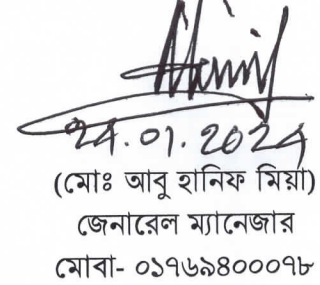 24.01.2024
(মোঃ আবু হানিফ মিয়া)
জেনারেল ম্যানেজার
মোবা- ০১৭৬৯৪০০০৭৮